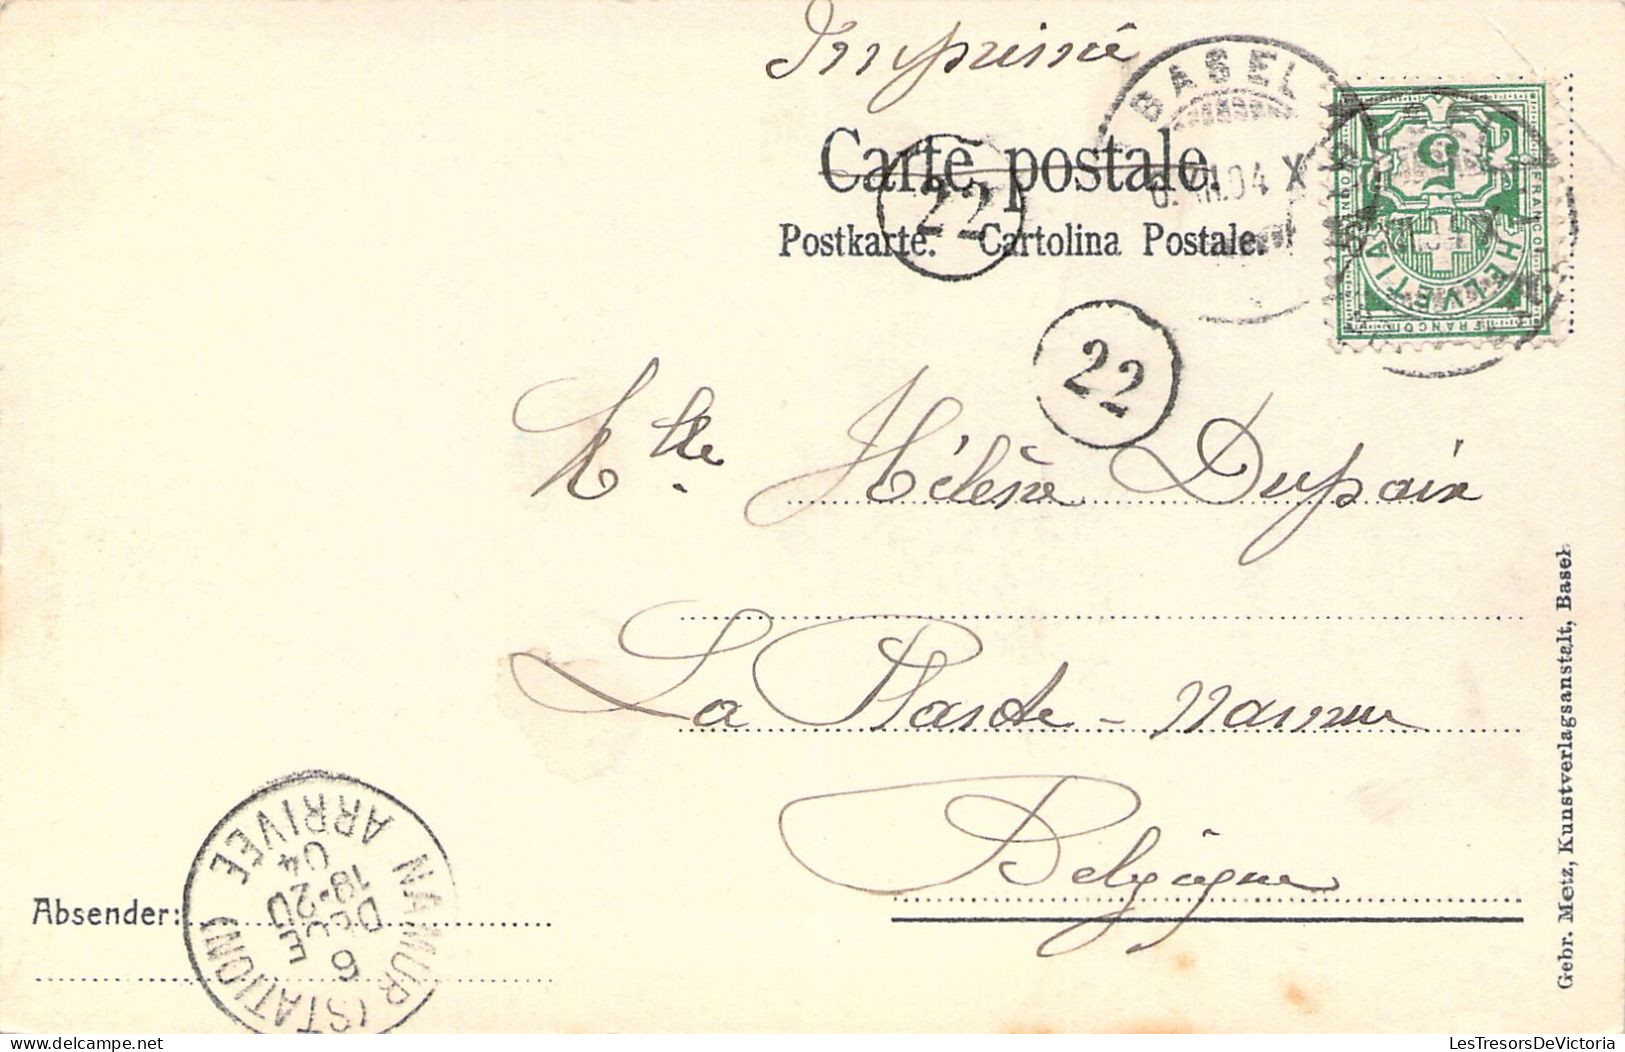 Imprimé
Carte postale.
Postkarte. Cartolina Postale.
22
22
BASEL
6.XII.04 X
FRANCO
HELVETIA
5
FRANCO
Mlle Hélène Dupaix
La Plante - Namur
Belgique
Absender:
NAMUR (STATION)
ARRIVEE
6
DEC
19-20
04
Gebr. Metz, Kunstverlagsanstalt, Basel.
LesTresorsDeVictoria-delcampe.net